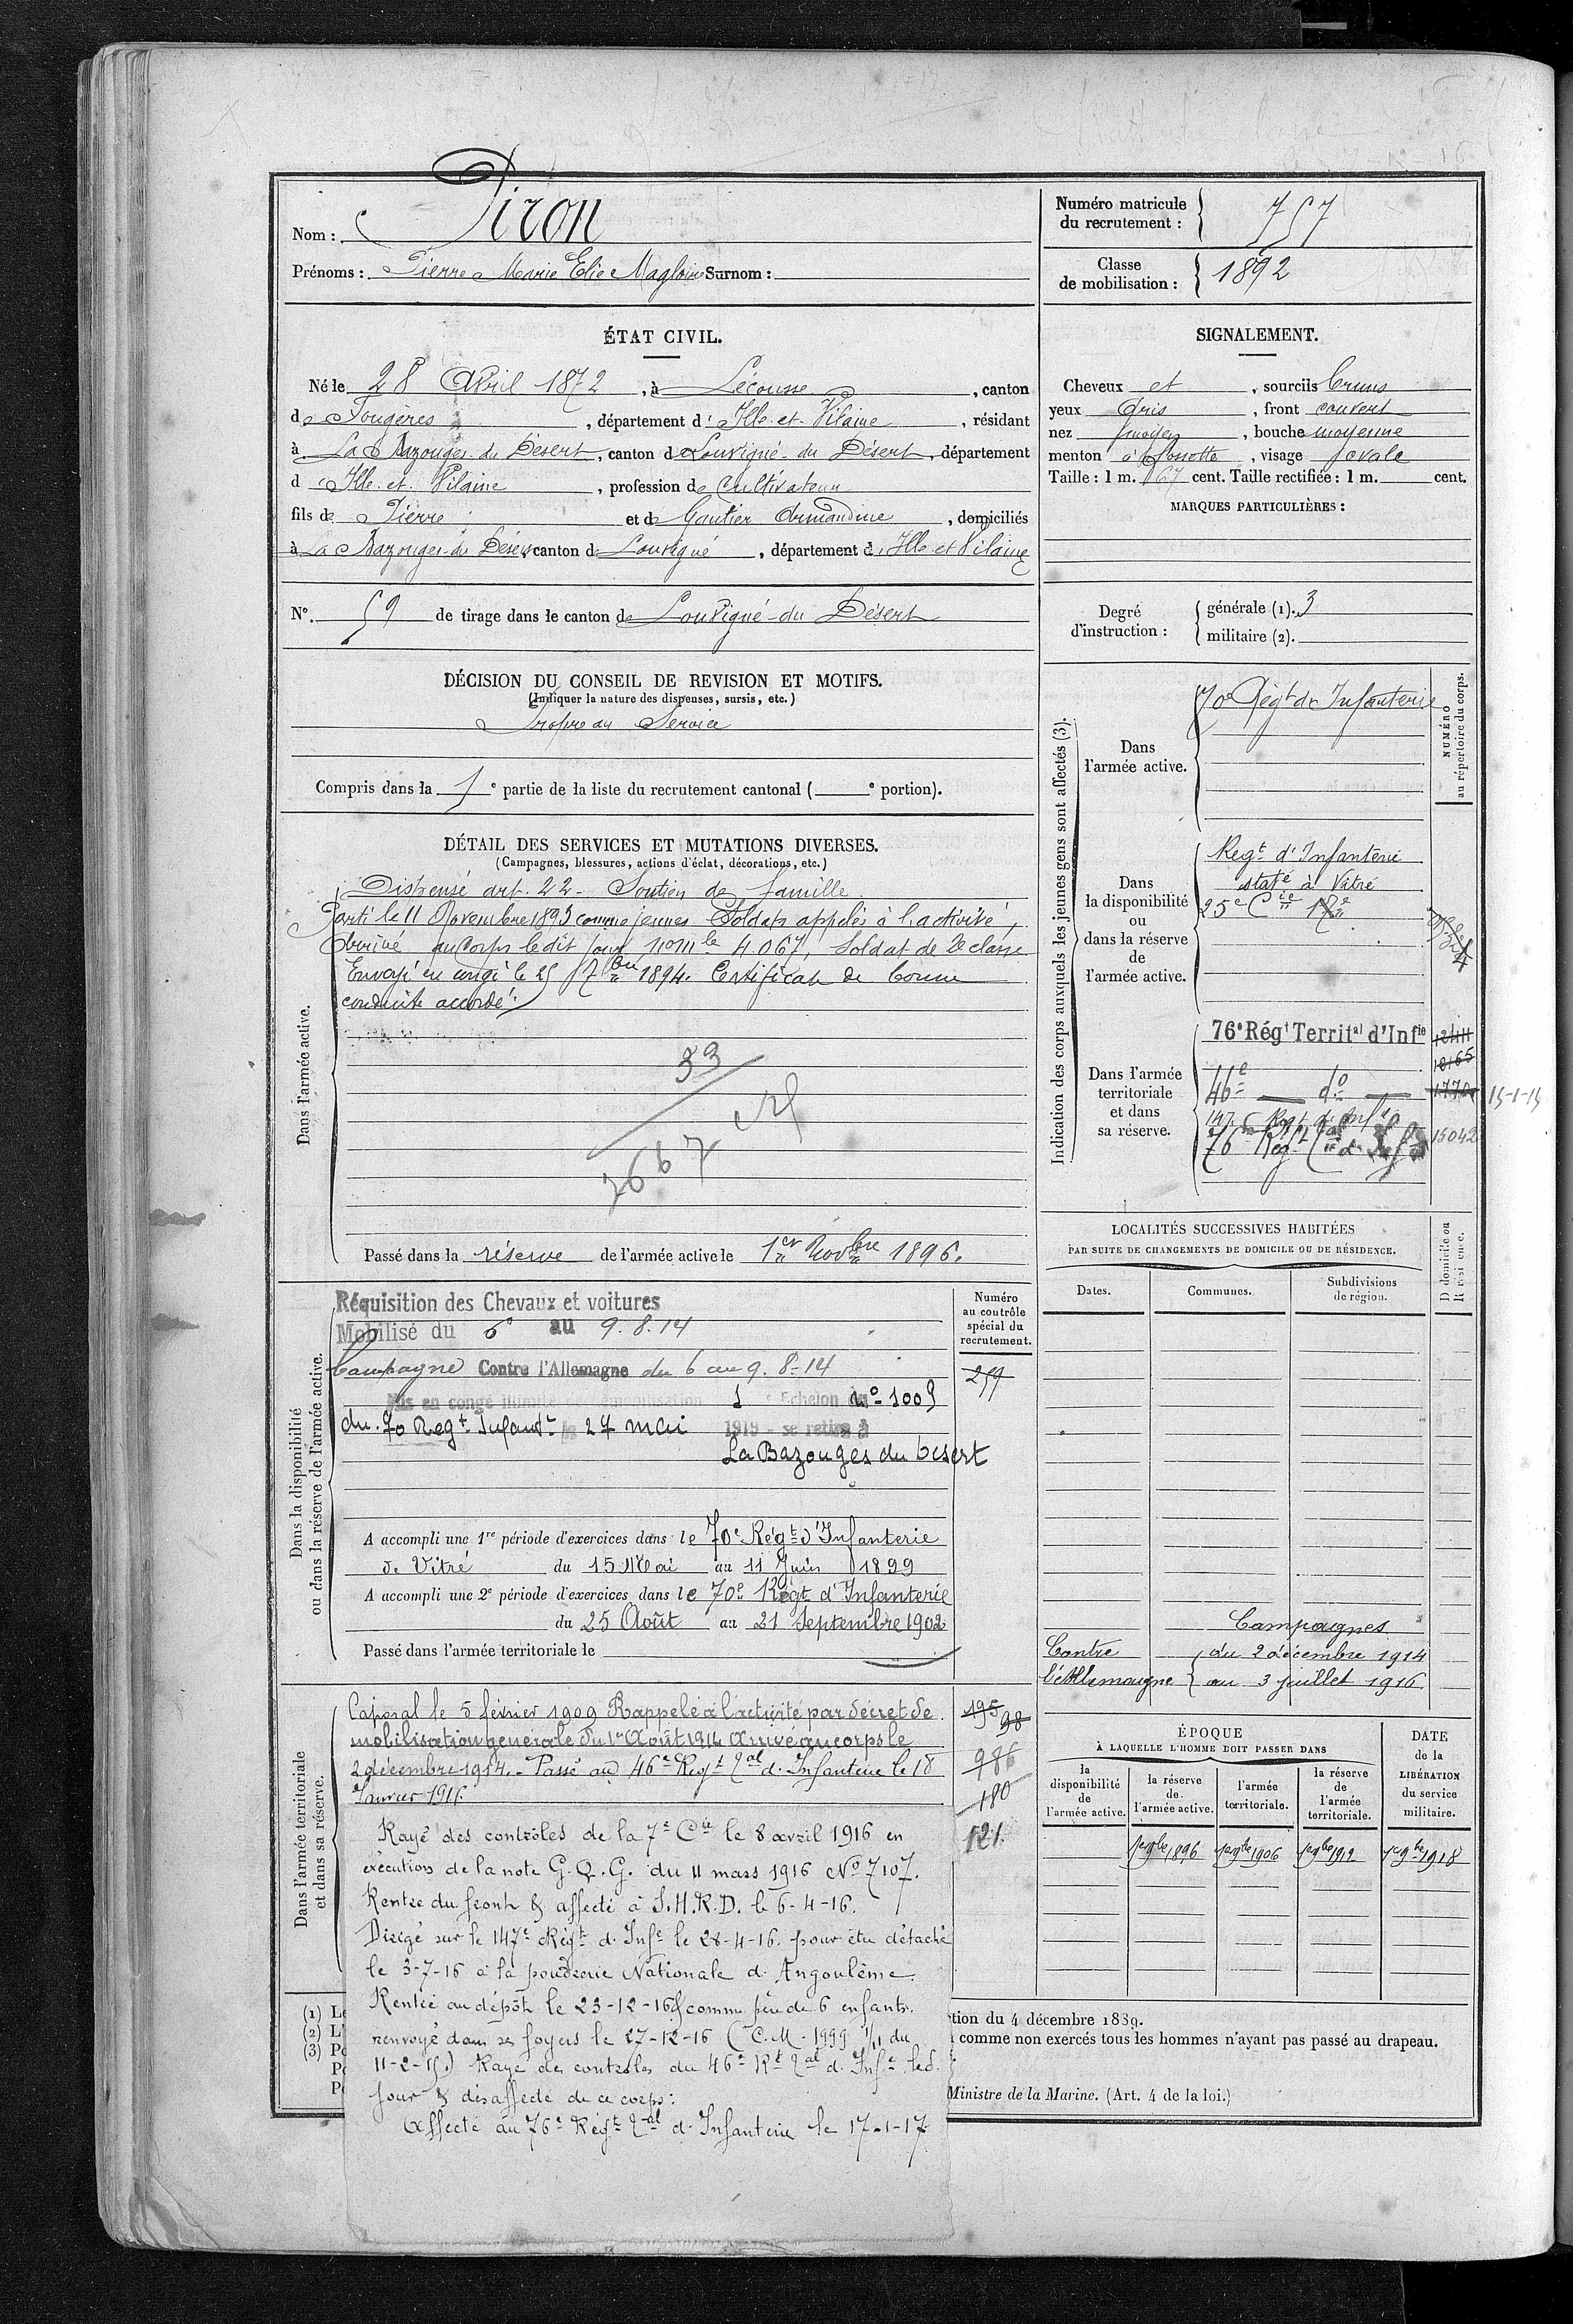 Nom : Piron
Prénoms : Pierre Marie Elie Magloire Surnom :
Numéro matricule du recrutement : 757
Classe de mobilisation : 1892
ÉTAT CIVIL.
Né le 28 Avril 1872, à Lécousse, canton
de Fougères, département d'Ille-et-Vilaine, résidant
à La Bazouges-du-Désert, canton de Louvigné-du Désert, département
d'Ille-et-Vilaine, profession de Cultivateur
fils de Pierre et de Gautier Armandine, domiciliés
à La Bazouges-du Désert, canton de Louvigné, département d'Ille et Vilaine
N° 59 de tirage dans le canton de Louvigné-du Désert
SIGNALEMENT.
Cheveux et, sourcils bruns
yeux Gris, front couvert
nez moyen, bouche moyenne
menton à fossette, visage ovale
Taille : 1 m. 67 cent. Taille rectifiée : 1 m. cent.
MARQUES PARTICULIÈRES :
Degré d'instruction : générale (1). 3
militaire (2).
DÉCISION DU CONSEIL DE REVISION ET MOTIFS.
(Indiquer la nature des dispenses, sursis, etc.)
Propre au Service
Compris dans la 1e partie de la liste du recrutement cantonal ( e portion).
DÉTAIL DES SERVICES ET MUTATIONS DIVERSES.
(Campagnes, blessures, actions d'éclat, décorations, etc.)
Dans l'armée active.
Dispensé art. 22 - Soutien de famille
Parti le 11 Novembre 1893 comme jeunes Soldats appelés à l'activité,
Arrivé au Corps le dit jour, n° mle 4067, Soldat de 2e classe
Envoyé en congé le 25 7bre 1894. Certificat de bonne
conduite accordé.
33
2667
Passé dans la réserve de l'armée active le 1er Novbre 1896.
Indication des corps auxquels les jeunes gens sont affectés (3).
NUMÉRO
au répertoire du corps.
Dans l'armée active.
70e Régt d'Infanterie
Dans la disponibilité ou dans la réserve de l'armée active.
Regt d'Infanterie
staté à Vitré
25e Cie
Dans l'armée territoriale et dans sa réserve.
76e Régt Territal d'Infie
12411
18165
46e do 1770 15-1-15
147e Regt d'Infie
76e Régt Tal d'Infie 15042
LOCALITÉS SUCCESSIVES HABITÉES
PAR SUITE DE CHANGEMENTS DE DOMICILE OU DE RÉSIDENCE.
Dates. Communes. Subdivisions de région. D domicile ou R résidence.
Dans la disponibilité
ou dans la réserve de l'armée active.
Numéro au contrôle spécial du recrutement.
Réquisition des Chevaux et voitures
Mobilisé du 6 au 9.8.14
Campagne Contre l'Allemagne du 6 au 9.8-14
259
Mis en congé illimité démobilisation 1 Echelon du N° 1009
du 70 Regt Infantie le 27 mai 1919 - se retire à
La Bazouges du Desert
A accompli une 1re période d'exercices dans le 70e Régt d'Infanterie
de Vitré du 15 Mai au 11 Juin 1899
A accompli une 2e période d'exercices dans le 70e Régt d'Infanterie
du 25 Août au 21 Septembre 1902
Passé dans l'armée territoriale le
Campagnes
Contre du 2 décembre 1914
l'Allemagne au 3 juillet 1916
Dans l'armée territoriale
et dans sa réserve.
Caporal le 5 février 1909 Rappelé à l'activité par décret de
mobilisation générale du 1er Août 1914 Arrivé au corps le
2 décembre 1914. - Passé au 46e Régt Tal d'Infanterie le 18
Janvier 1915.
195
98
986
180
121.
Rayé des contrôles de la 7e Cie le 8 avril 1916 en
exécution de la note G.Q.G. du 11 mars 1916 N° 7107.
Rentré du front & affecté à S.H.R.D. le 6-4-16.
Dirigé sur le 147e Régt d'Infie le 28-4-16. pour être détaché
le 3-7-16 à la poudrerie Nationale d'Angoulême.
Rentré au dépôt le 23-12-16 & comme père de 6 enfants.
renvoyé dans ses foyers le 27-12-16 (C.M. 1999 1/11 du
11-2-15.) Rayé des contrôles du 46e Rt Tal d'Infie led.
jour & désaffecté de ce corps.
Affecté au 76e Régt Tal d'Infanterie le 17-1-17
ÉPOQUE
À LAQUELLE L'HOMME DOIT PASSER DANS
la disponibilité de l'armée active. la réserve de l'armée active. l'armée territoriale. la réserve de l'armée territoriale. DATE de la LIBÉRATION du service militaire.
1er 9bre 1896 1er 9bre 1906 1er 9bre 1912 1er 9bre 1918
(1) Le
(2) L'
(3) Po
tion du 4 décembre 1889.
comme non exercés tous les hommes n'ayant pas passé au drapeau.
Ministre de la Marine. (Art. 4 de la loi.)